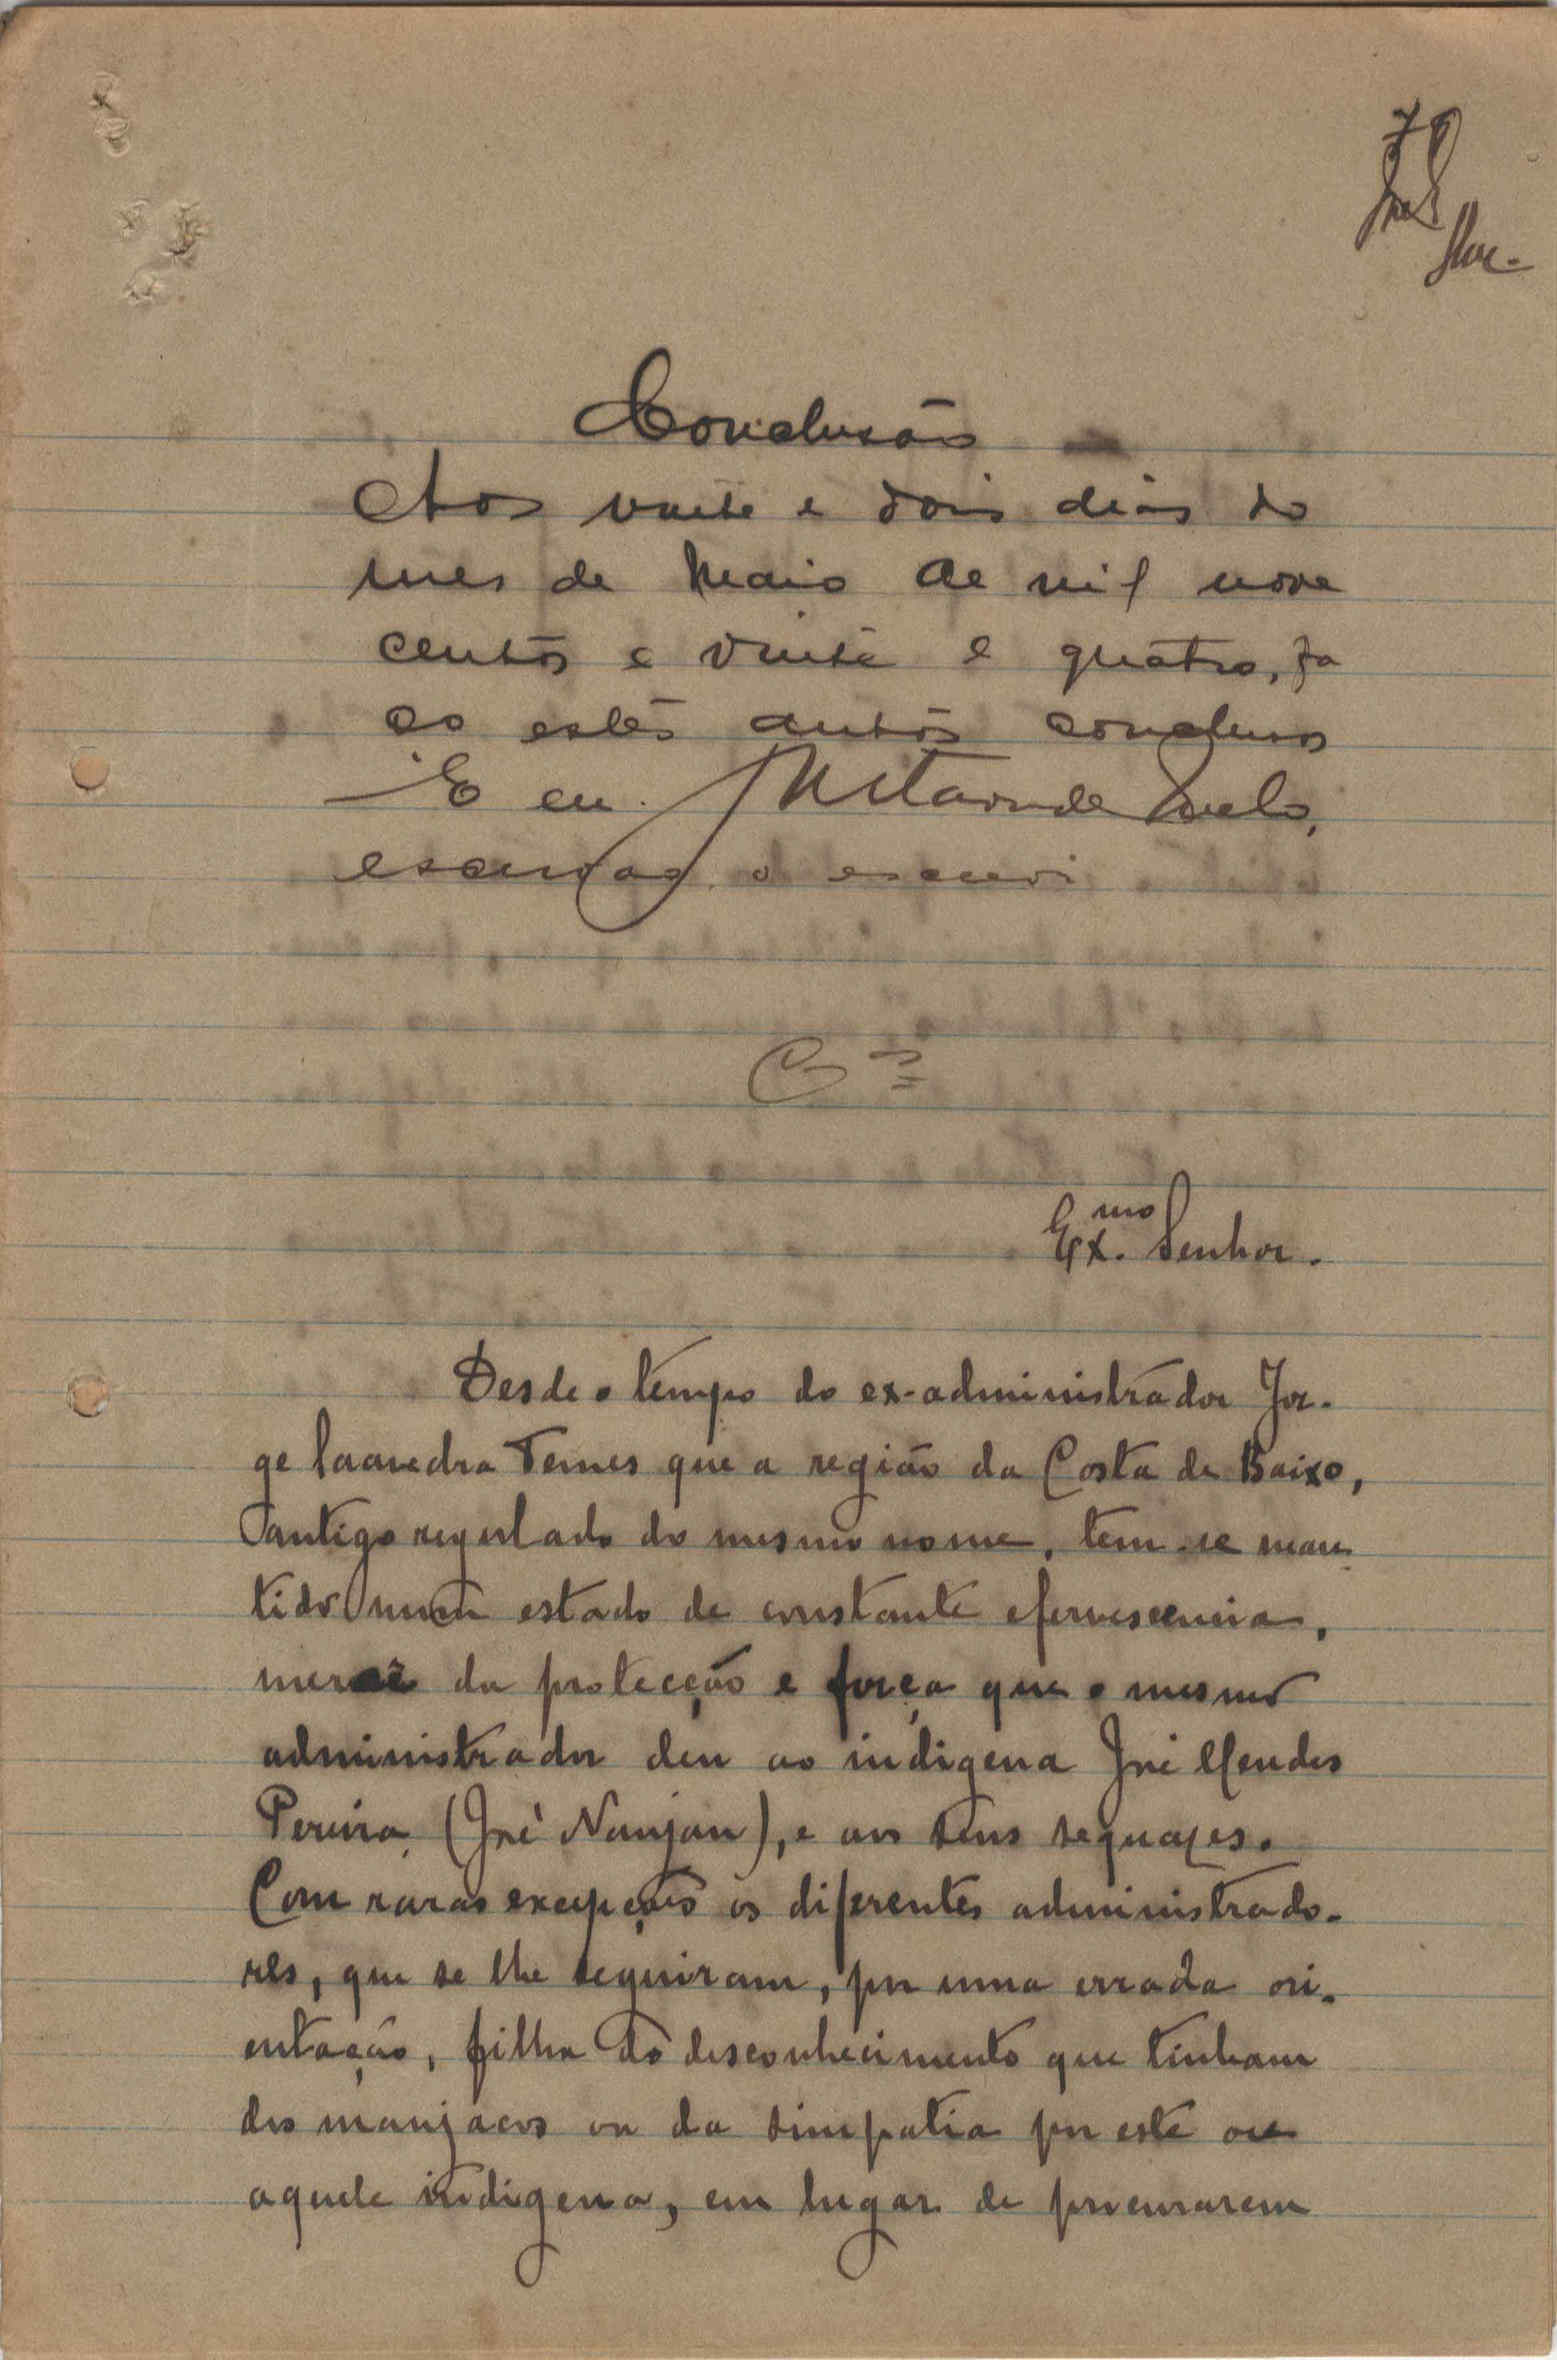 79
Conclusão
Aos vinte e dois dias do
mes de Maio de mil nove
centos e vinte e quatro, fa
ço estes autos conclusos
E eu Melo,
escrivão o escrevi
Ex.mo Senhor.
Desde o tempo do ex-administrador Jor-
ge Saavedra Temes que a região da Costa de Baixo,
antigo regulado do mesmo nome, tem-se man
tido num estado de constante efervescencia,
mercê da protecção e força que o mesmo
administrador deu ao indigena José Mendes
Pereira (José Nanjan), e aos seus sequazes.
Com raras excepções os diferentes administrado-
res, que se lhe seguiram, por uma errada ori-
entação, filha do desconhecimento que tinham
dos manjacos ou da simpatia por este ou
aquele indigena, em lugar de procurarem